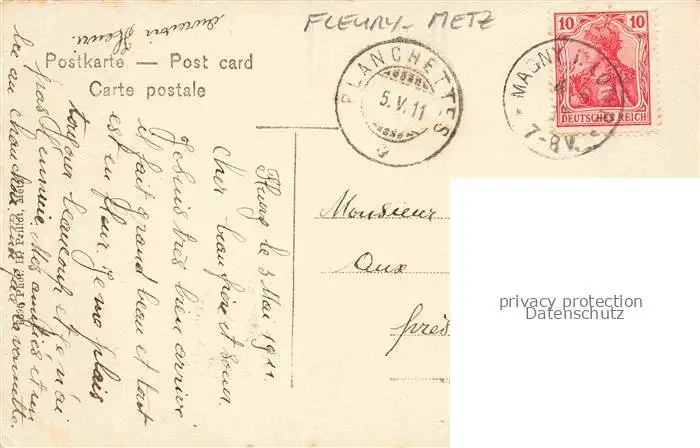 FLEURY - METZ
Postkarte — Post card
Carte postale
PLANCHETTES
5.V.11
MAGNY
7-8V.
10 10
DEUTSCHES REICH
Fleury le 3 Mai 1911.
Cher beau frère et sœur
Je suis très bien arrivé
il fait grand beau et tout
est en fleur. Je me plais
toujour beaucoup et je n'ai
pas ennuie. Mes amitiés et un
au
souvenir Henri.
Monsieur
Aux
près
privacy protection
Datenschutz